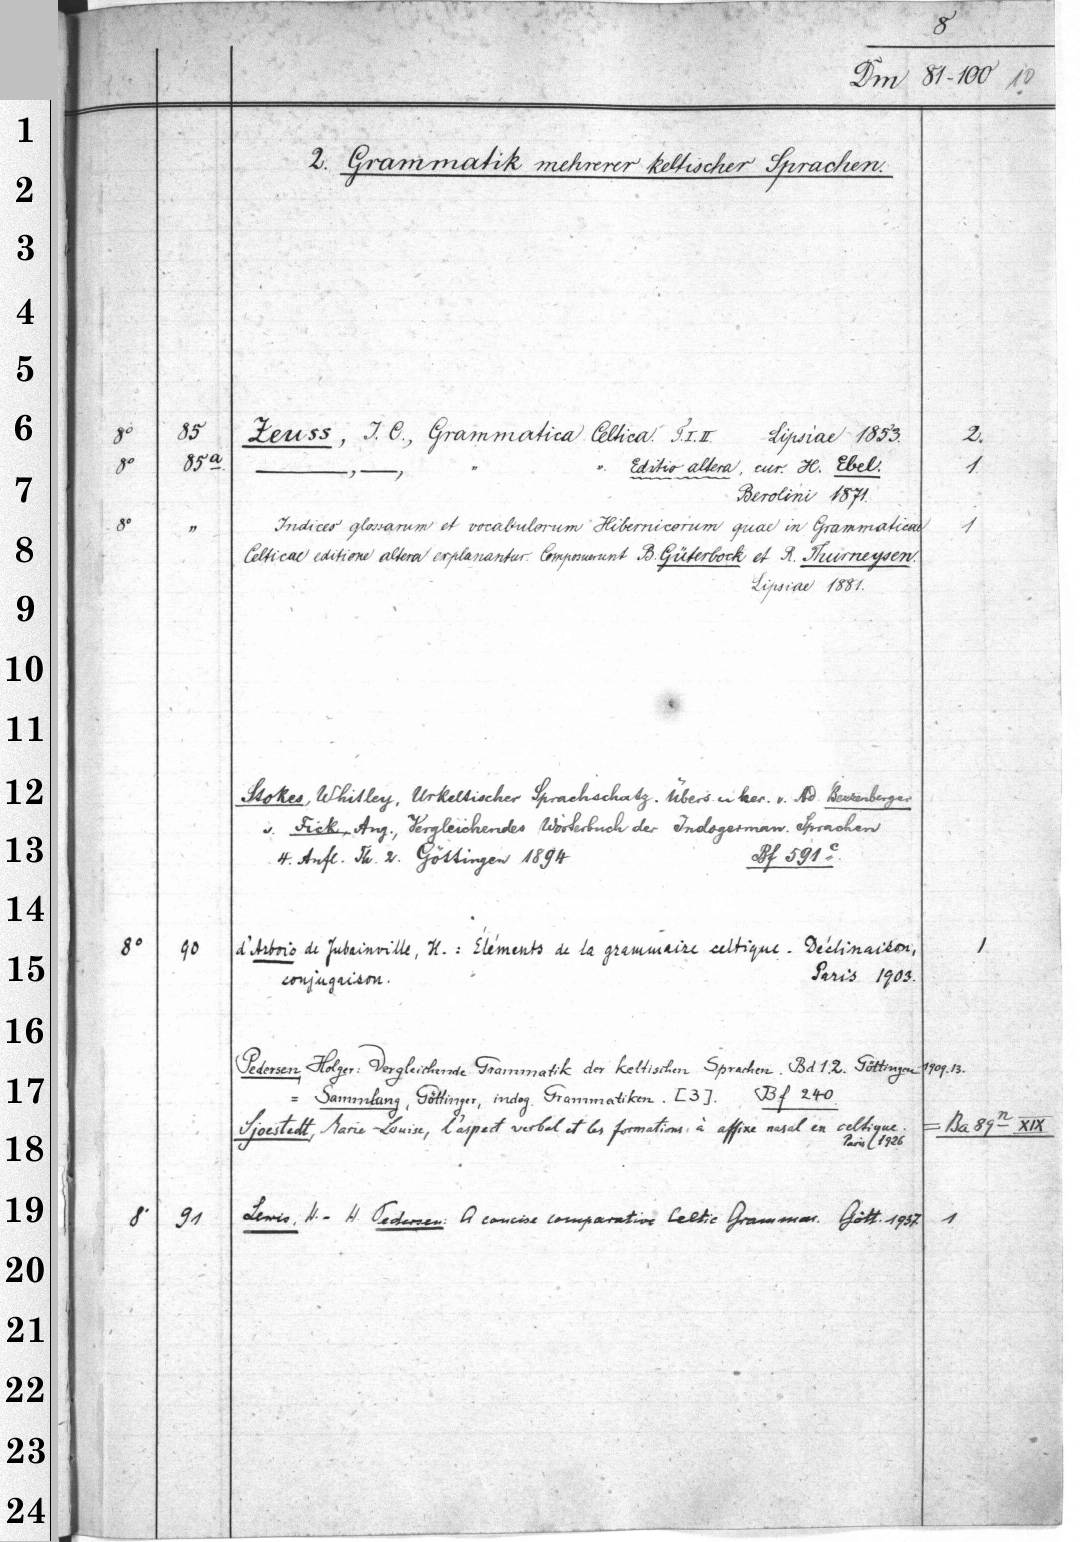 8
Dm 81-100 10
1
2. Grammatik mehrerer keltischer Sprachen.
2
3
4
5
6
8° 85 Zeuss, J. C., Grammatica Celtica. P. I. II Lipsiae 1853. 2.
8° 85a ———, —, " " Editio altera, cur. H. Ebel. 1
7
Berolini 1871.
8° " Indices glossarum et vocabulorum Hibernicorum quae in Grammaticae 1
8
Celticae editione altera explanantur. Composuerunt B. Güterbock et R. Thurneysen.
Lipsiae 1881.
9
10
11
12
Stokes, Whitley, Urkeltischer Sprachschatz. Übers. u. her. v. Ad. Bezzenberger
v. Fick, Aug., Vergleichendes Wörterbuch der Indogerman. Sprachen
13
4. Aufl. Th. 2. Göttingen 1894 Bf 591c.
14
8° 90 d'Arbois de Jubainville, H. : Éléments de la grammaire celtique. Déclinaison, 1
15
conjugaison. Paris 1903.
16
Pedersen, Holger: Vergleichende Grammatik der keltischen Sprachen. Bd 1.2. Göttingen 1909.13.
17
= Sammlung, Göttinger, indog. Grammatiken. [3]. Bf 240
Sjoestedt, Marie-Louise, l'aspect verbal et les formations à affixe nasal en celtique. = Ba 89n XIX
Paris 1926
18
19
8° 91 Lewis, H. - H. Pedersen: A concise comparative Celtic Grammar. Gött. 1937. 1
20
21
22
23
24